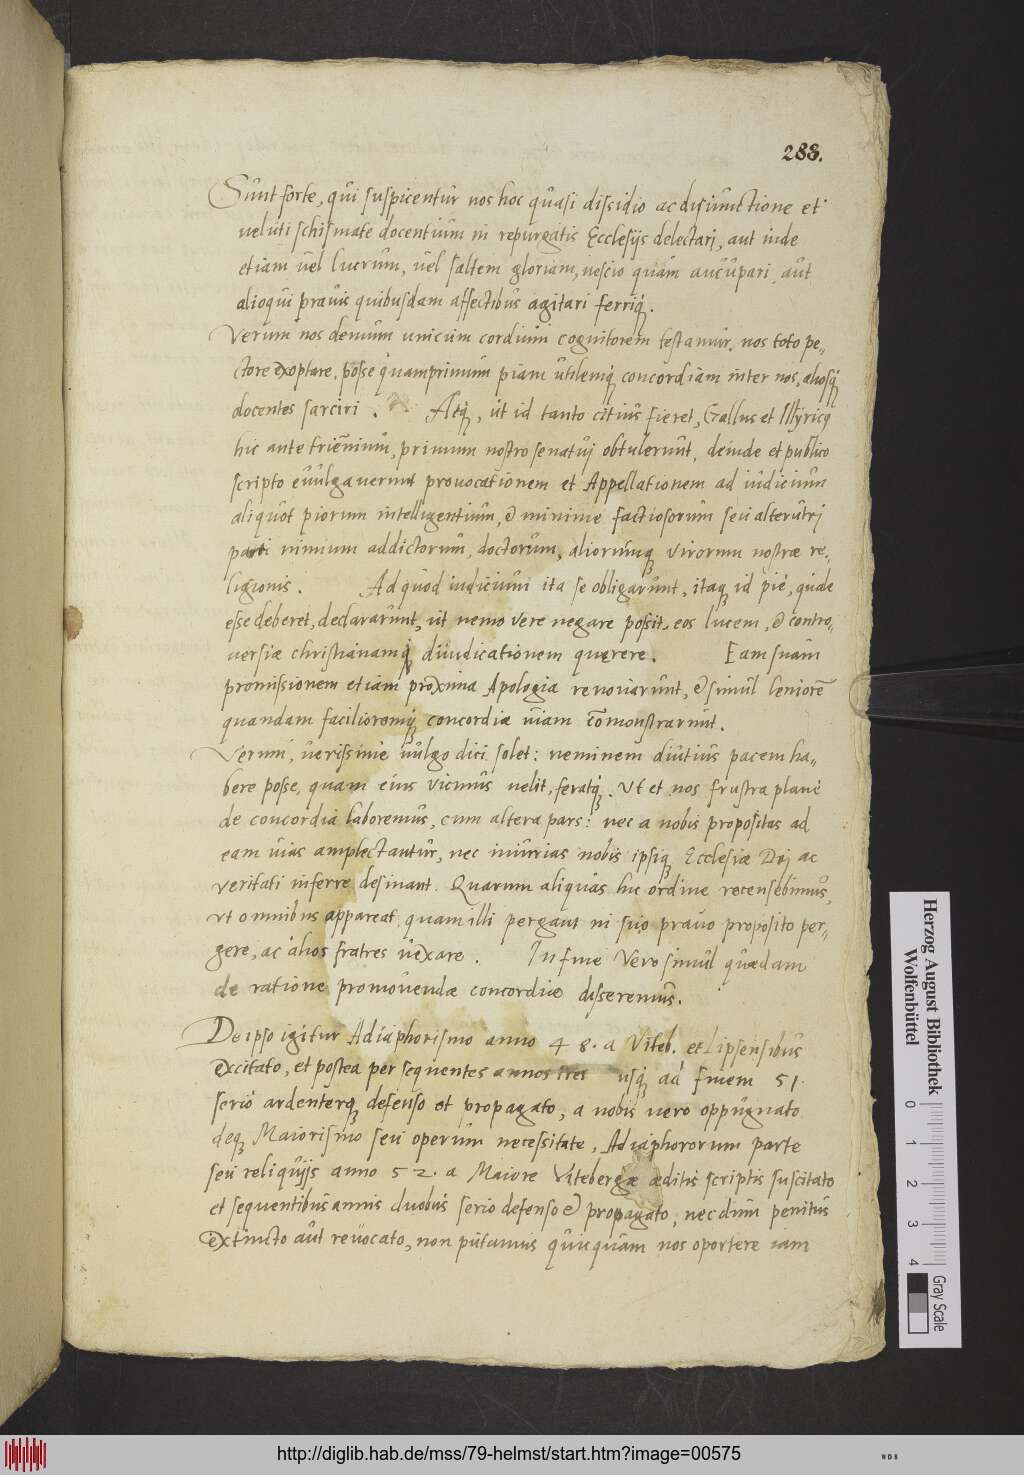 283.
Sunt forte, qui suspicentur nos hoc quasi dissidio ac disiunctione et
veluti schismate docentium in repurgatis Ecclesijs delectari, aut inde
etiam vel lucrum, vel saltem gloriam, nescio quam aucupari, aut
alioqui pravis quibusdam affectibus agitari ferriq́.
Verum nos denum unicum cordium cognitorem testamur, nos toto pe-
ctore exoptare, posse quamprimum piam utilemq́ concordiam inter nos, aliosq́
docentes sarciri. Atq́, ut id tanto citius fieret, Gallus et Illyricq
hic ante triennium, primum nostro senatui obtulerunt, deinde et publico
scripto evulgaverunt provocationem et Appellationem ad iudicium
aliquot piorum intelligentium, & minime factiosorum seu alterutri
parti nimium addictorum, doctorum, aliorumq virorum nostræ re-
ligionis. Ad quod iudicium ita se obligarunt, itaq id pie, quide
esse deberet, declararunt, ut nemo vere negare possit, eos lucem, & contro-
versiæ christianamq́ diiudicationem quęrere. Eam suam
promissionem etiam proxima Apologia renovarunt, & simul leniorē
quandam facilioremq́ concordiæ viam cōmonstrarunt.
Verum, verissime vulgo dici solet: neminem diutius pacem ha-
bere posse, quam eius vicinus velit, feratq́. Ut et nos frustra planè
de concordia laboremus, cum altera pars: nec a nobis propositas ad
eam vias amplectantur, nec iniurias nobis ipsiq Ecclesiæ Dei ac
veritati inferre desinant. Quarum aliquas hic ordine recensebimus,
ut omnibus appareat quam illi pergant in suo pravo proposito per-
gere, ac alios fratres vexare. In fine vero simul quædam
de ratione promovendæ concordiæ disseremus.
De ipso igitur Adiaphorismo anno 48. a Viteb. et Lipsensibus
excitato, et postea per sequentes annos tres usq́ ad finem 51.
serio ardenterq defenso et propagato, a nobis vero oppugnato
deq Maiorismo seu operum necessitate, Adiaphororum parte
seu reliquijs anno 52. a Maiore Vitebergæ æditis scriptis suscitato
et sequentibus annis duobus serio defenso & propagato, nec dum penitus
extincto aut revocato, non putamus quicquam nos oportere iam
Herzog August Bibliothek
Wolfenbüttel
0 1 2 3 4
Gray Scale
http://diglib.hab.de/mss/79-helmst/start.htm?image=00575